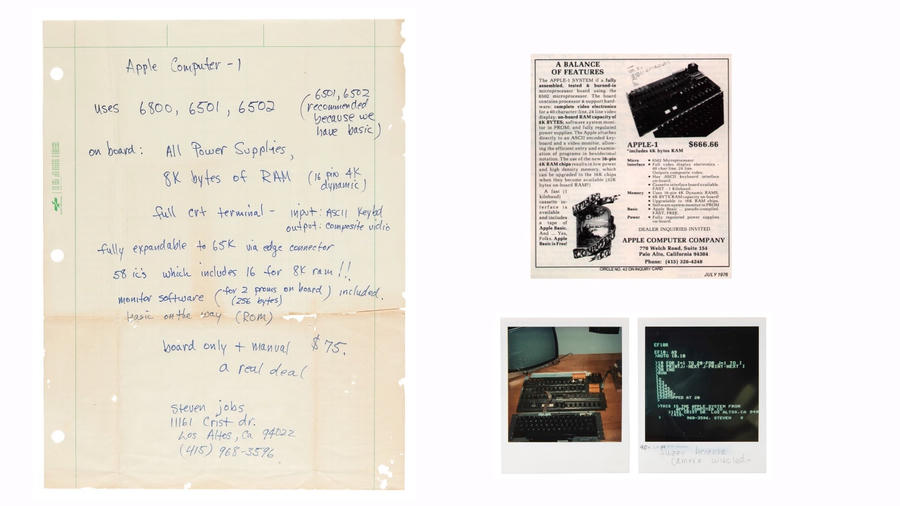 Apple Computer-1
uses 6800, 6501, 6502
(6501, 6502
recommended
because we
have basic)
on board: All Power Supplies,
8K bytes of RAM (16 pin 4K
dynamic)
full crt terminal - input: ASCII Keybd
output: composite vidio
fully expandable to 65K via edge connector
58 ic's which includes 16 for 8K ram!!
monitor software (for 2 proms on board) included.
(256 bytes)
basic on the way (ROM)
board only + manual $75.
a real deal
Steven jobs
11161 Crist dr.
Los Altos, Ca 94022
(415) 968-3596
A BALANCE
OF FEATURES
The APPLE-1 SYSTEM is a fully
assembled, tested & burned-in
microprocessor board using the
6502 microprocessor. The board
contains processor & support hard-
ware; complete video electronics
for a 40 character/line, 24 line video
display; on-board RAM capacity of
8K BYTES; software system moni-
tor in PROM; and fully regulated
power supplies. The Apple attaches
directly to an ASCII encoded key-
board and a video monitor, allow-
ing the efficient entry and exami-
nation of programs in hexidecimal
notation. The use of the new 16-pin
4K RAM chips results in low power
and high density memory, which
can be upgraded to the 16K chips
when they become available (32K
bytes on-board RAM!!)
A fast (1
kilobaud)
cassette in-
terface is
available
and includes
a tape of
Apple Basic.
And ... Yes,
Folks, Apple
Basic is Free!
APPLE-1 $666.66
*includes 4K bytes RAM
Micro • 6502 Microprocessor
Interface • Full video display electronics -
40 char/line, 24 line.
Outputs composite video.
• Has ASCII keyboard interface
on-board.
• Cassette interface board available.
FAST - 1 Kilobaud.
Memory • Uses 16-pin 4K Dynamic RAMS.
• 8K BYTES RAM capacity on board!
• Upgradable to 16K RAM chips.
• Software system monitor in PROM
Basic • Apple Basic
FAST, FREE.
Power • Fully regulated power supplies
on-board.
DEALER INQUIRIES INVITED
APPLE COMPUTER COMPANY
770 Welch Road, Suite 154
Palo Alto, California 94304
Phone: (415) 326-4248
CIRCLE NO. 42 ON INQUIRY CARD
JULY 1976
EF10R